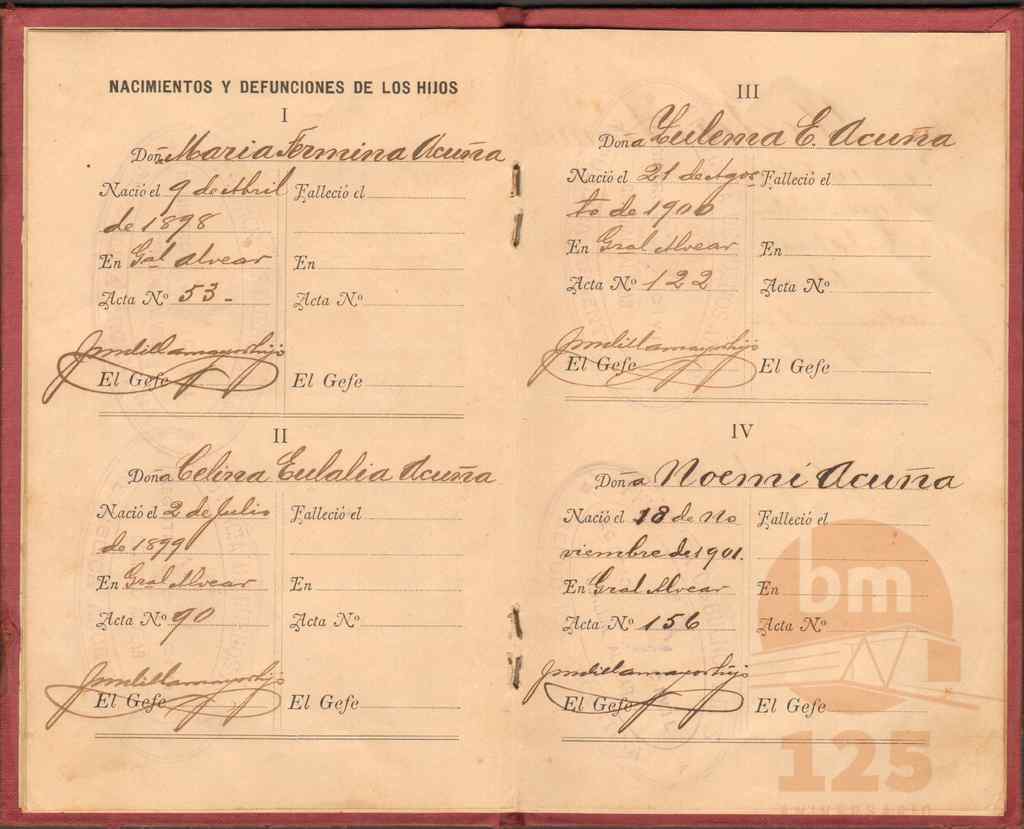 NACIMIENTOS Y DEFUNCIONES DE LOS HIJOS
I
Doña Maria Fermina Acuña
Nació el 9 de Abril
de 1898
En Gral Alvear
Acta Nº 53-
El Gefe
Falleció el
En
Acta Nº
El Gefe
II
Doña Celina Eulalia Acuña
Nació el 2 de Julio
de 1899
En Gral Alvear
Acta Nº 90
El Gefe
Falleció el
En
Acta Nº
El Gefe
III
Doña Zulema E. Acuña
Nació el 21 de Agos
to de 1900
En Gral Alvear
Acta Nº 122
El Gefe
Falleció el
En
Acta Nº
El Gefe
IV
Doña Noemí Acuña
Nació el 18 de No
viembre de 1901.
En Gral Alvear
Acta Nº 156
El Gefe
Falleció el
En
Acta Nº
El Gefe
bm
125
ANIVERSARIO